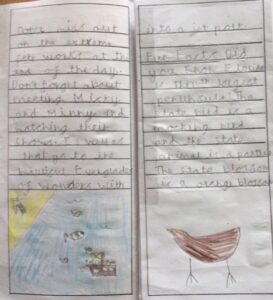 Don't miss out
on the extreme
fete works at the
end of the day.
Don't forget about
meeting Micky
and Minny and
watching their
shows. If
that go to the
Everglades
of wonders with
into a jet
Fun Facts Did
you know Florida
is third biggest
peninsula The
state bird is a
mocking bird
and the state
animal is a panther
The state blossom
is a orange blossom